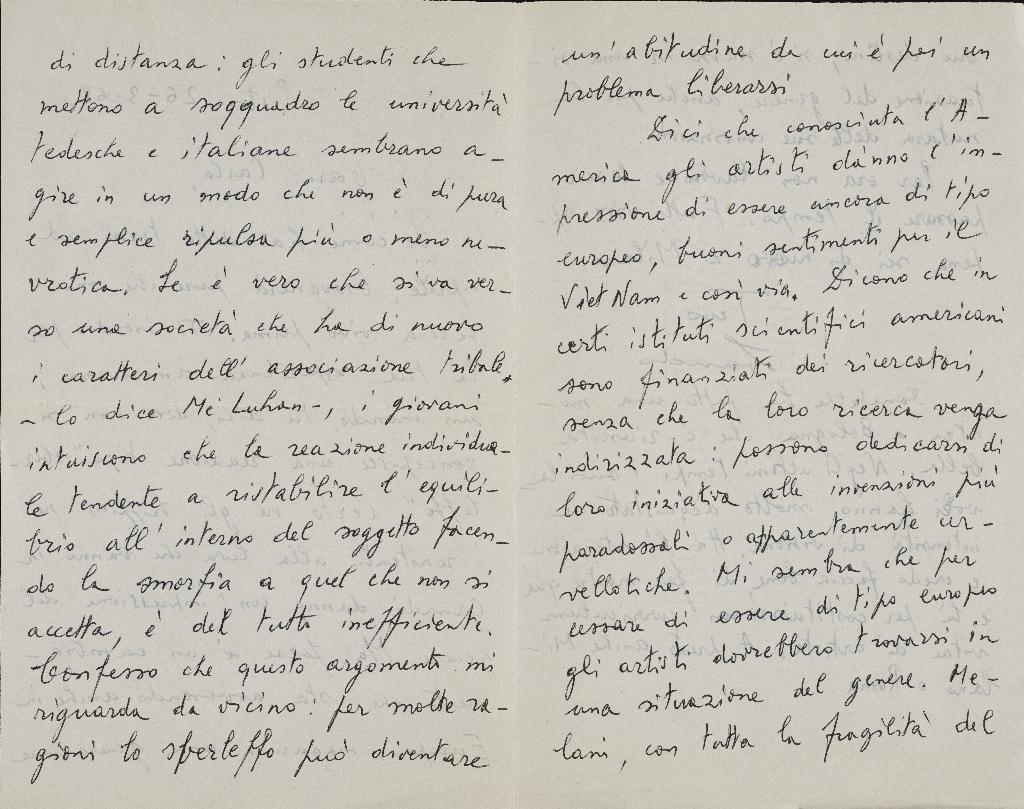 di distanza: gli studenti che
mettono a soqquadro le università
tedesche e italiane sembrano a-
gire in un modo che non è di pura
e semplice ripulsa più o meno ne-
vrotica. Se è vero che si va ver-
so una società che ha di nuovo
i caratteri dell'associazione tribale,
- lo dice Mc Luhan -, i giovani
intuiscono che la reazione individua-
le tendente a ristabilire l'equili-
brio all'interno del soggetto facen-
do la smorfia a quel che non si
accetta, è del tutto inefficiente.
Confesso che questo argomento mi
riguarda da vicino: per molte ra-
gioni lo sberleffo può diventare
un'abitudine da cui è poi un
problema liberarsi
Dici che conosciuta l'A-
merica gli artisti dànno l'im-
pressione di essere ancora di tipo
europeo, buoni sentimenti per il
Viet Nam e così via. Dicono che in
certi istituti scientifici americani
sono finanziati dei ricercatori,
senza che la loro ricerca venga
indirizzata: possono dedicarsi di
loro iniziativa alle invenzioni più
paradossali o apparentemente cer-
vellotiche. Mi sembra che per
cessare di essere di tipo europeo
gli artisti dovrebbero trovarsi in
una situazione del genere. Me-
lani, con tutta la fragilità del